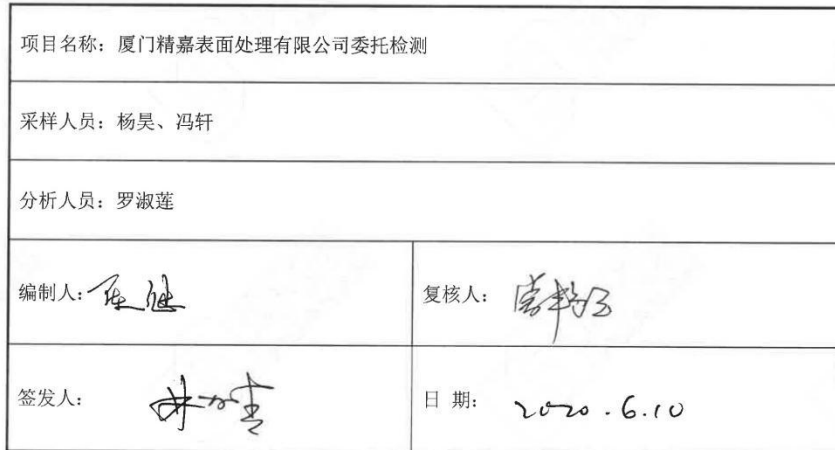 项目名称：厦门精嘉表面处理有限公司委托检测
采样人员：杨昊、冯轩
分析人员：罗淑莲
编制人：
复核人：
签发人：
日 期：2020.6.10